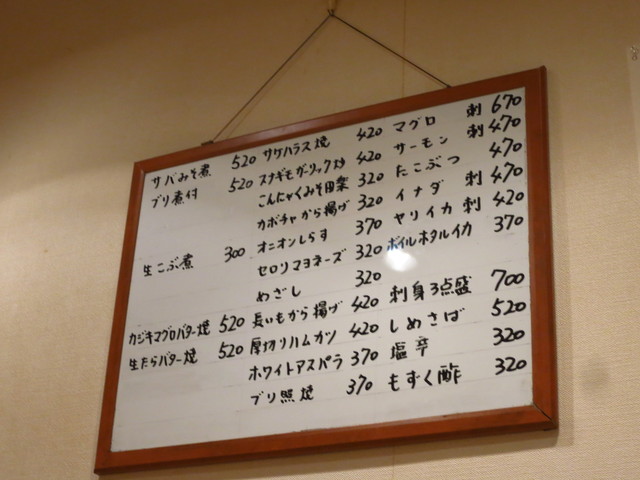 サバみそ煮 520
ブリ煮付 520
生こぶ煮 300
カジキマグロバター焼 520
生たらバター焼 520
サケハラス焼 420
スナギモガーリック炒 420
こんにゃくみそ田楽 320
カボチャから揚げ 320
オニオンしらす 370
セロリマヨネーズ 320
めざし 320
長いもから揚げ 420
厚切りハムカツ 420
ホワイトアスパラ 370
ブリ照焼 370
マグロ刺 670
サーモン刺 470
たこぶつ 470
イナダ刺 470
ヤリイカ刺 420
ボイルホタルイカ 370
刺身3点盛 700
しめさば 520
塩辛 320
もずく酢 320